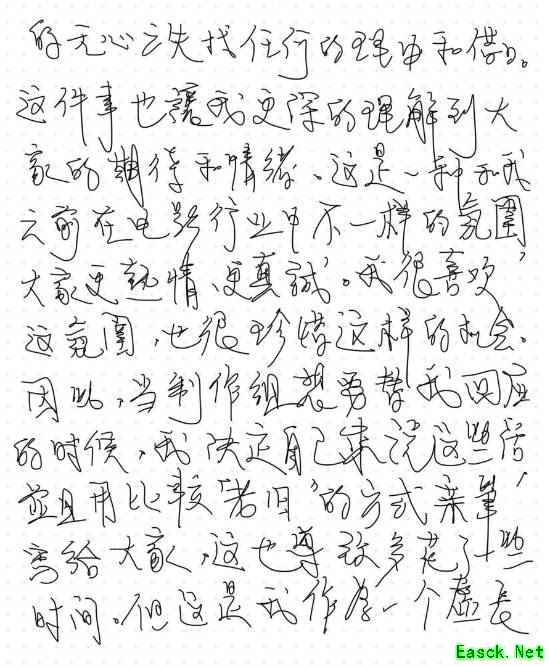 的无心之失找任何的理由和借口。
这件事也讓我更深的理解到大
家的期待和情绪。这是一种和我
之前在电影行业中不一样的氛圍,
大家更熱情、更真誠。我很喜欢
这氛圍,也很珍惜这样的机会。
因此,当制作组想要替我回应
的时候,我决定自己来说这些话,
並且用比较“老旧”的方式亲筆
寫给大家,这也导致多花了一些
时间。但这是我作为一个虚长
Easck.Net